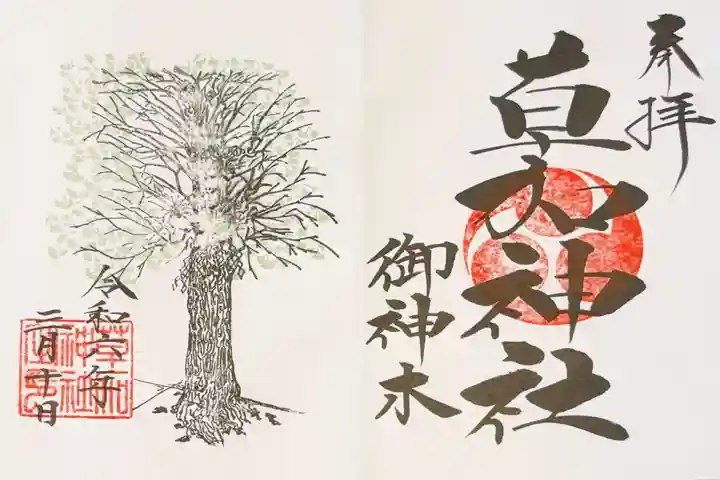 奉拝
草加神社
御神木
令和六年
二月十日